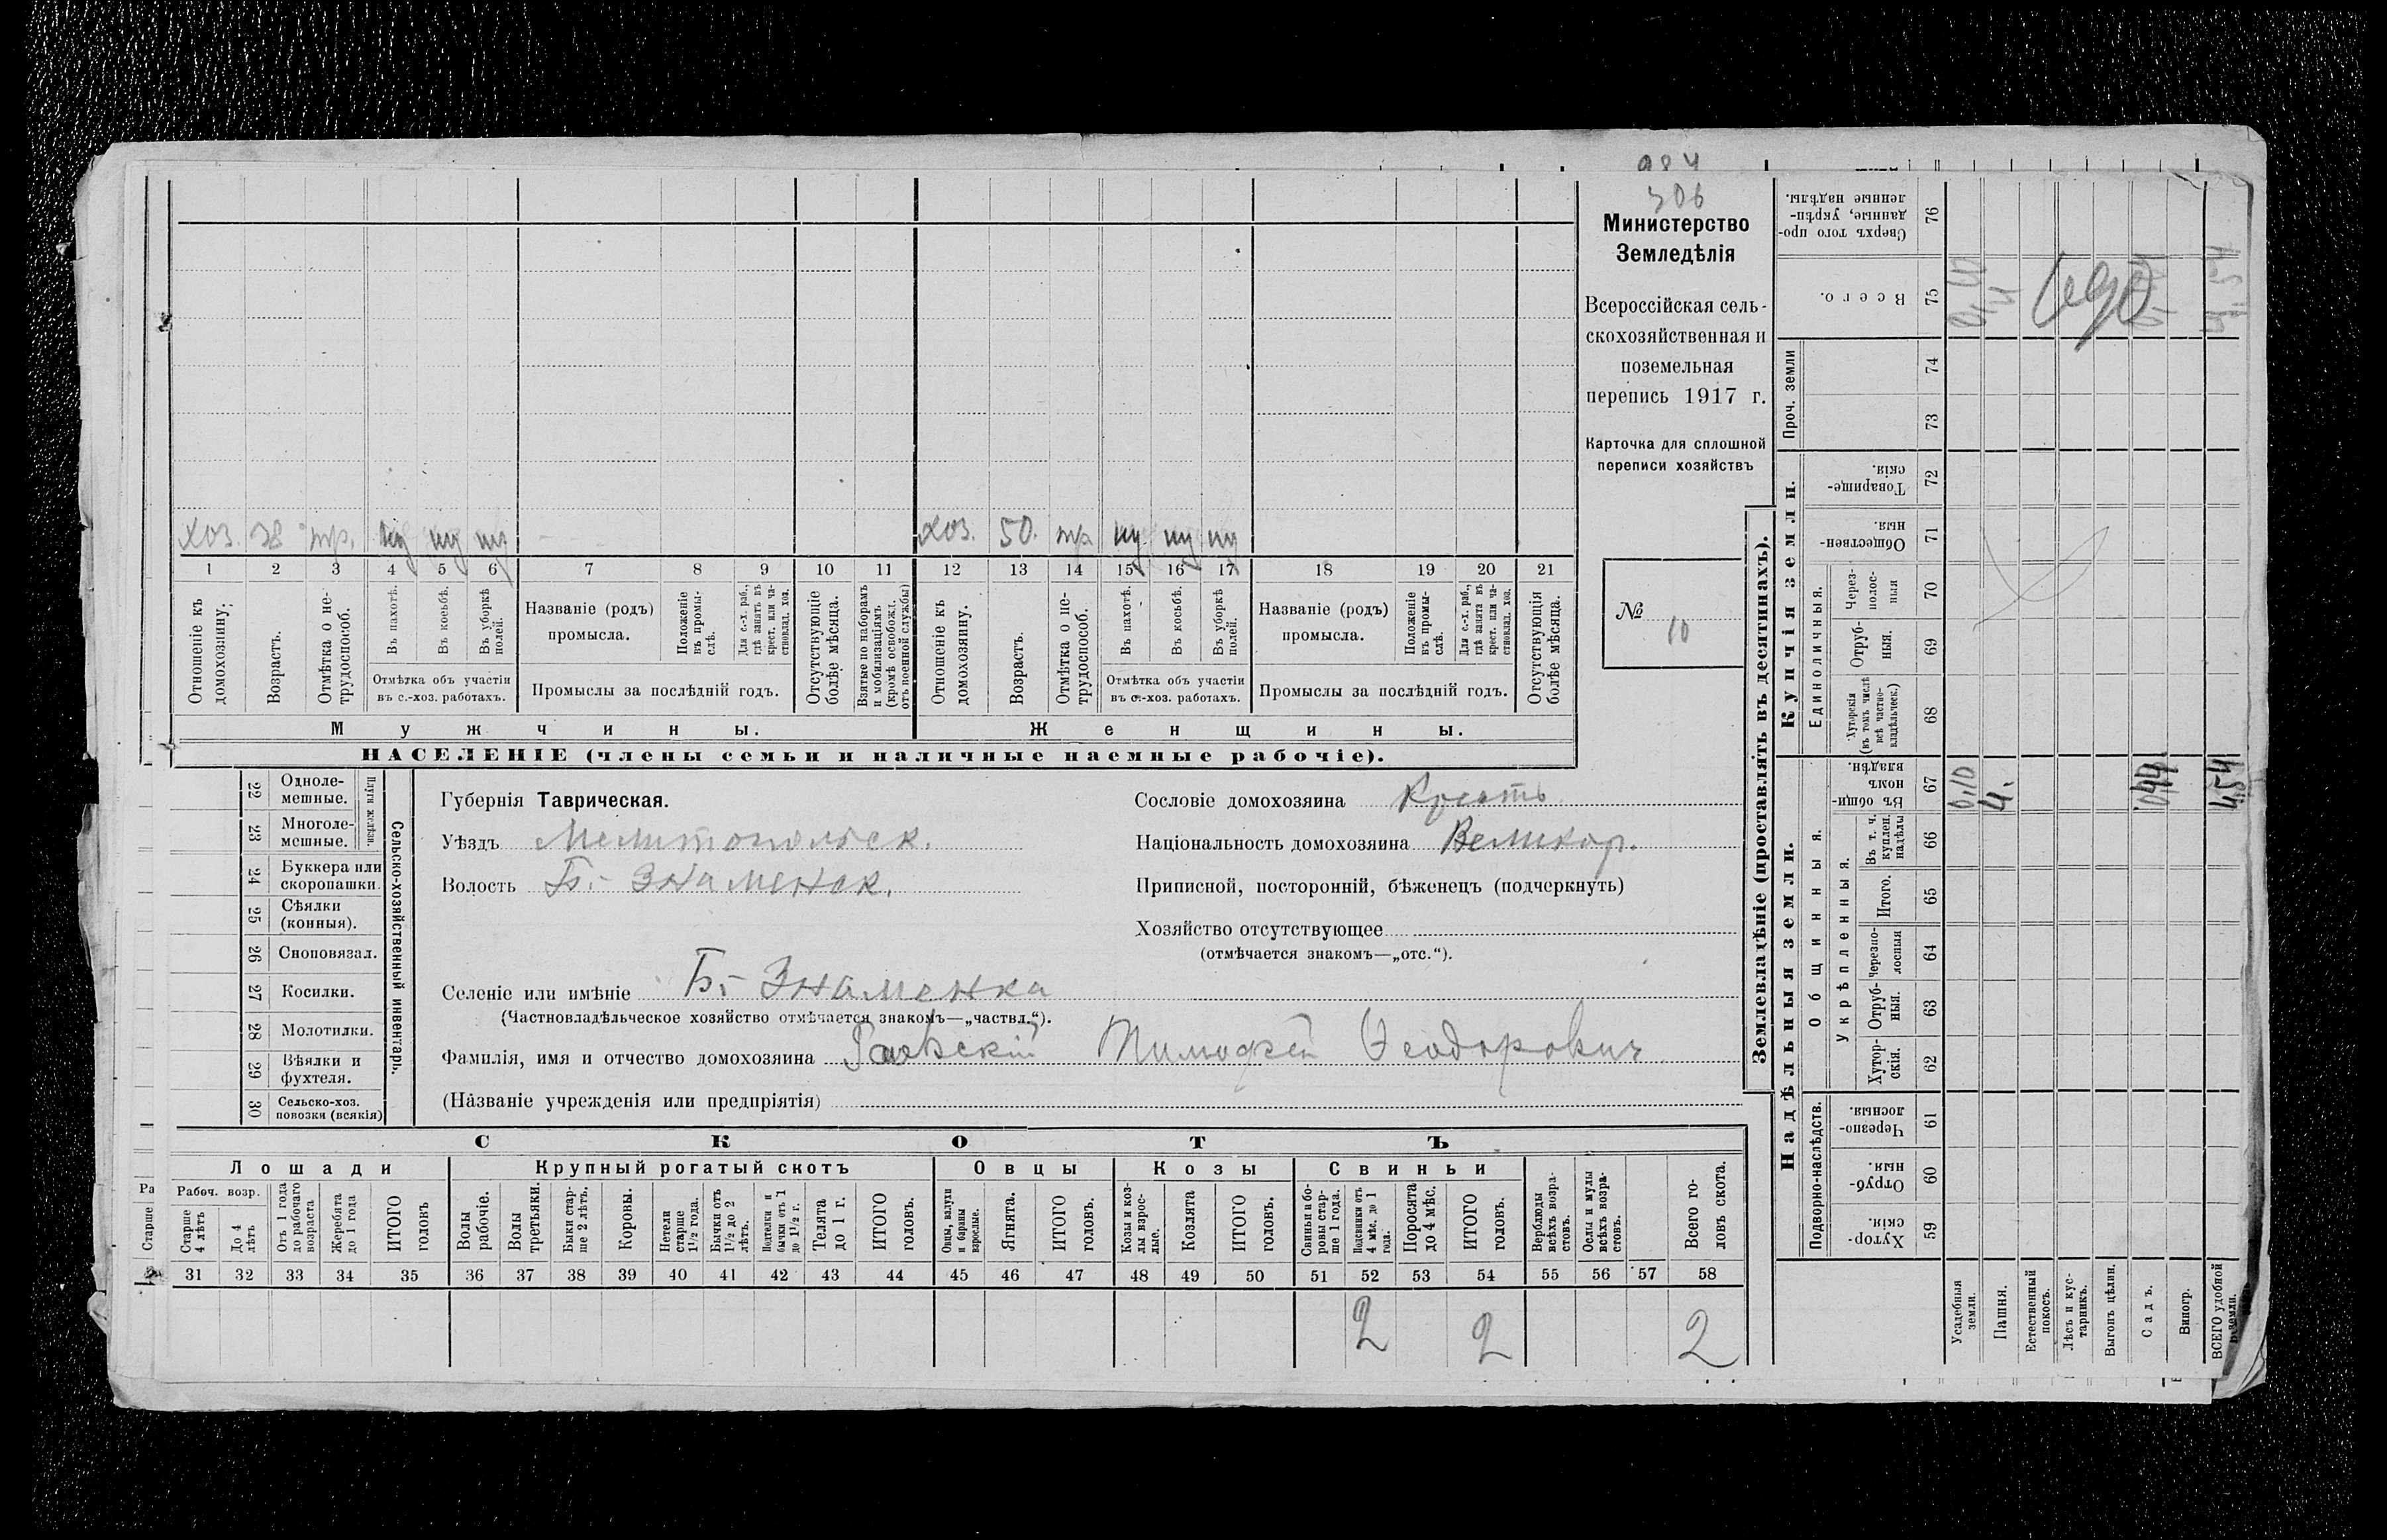 984
306
Министерство
Земледѣлія
Всероссійская сель-
скохозяйственная и
поземельная
перепись 1917 г.
Карточка для сплошной
переписи хозяйствъ
№ 10
хоз. тр. хоз. 50. тр.
1 2 3 4 5 6 7 8 9 10 11 12 13 14 15 16 17 18 19 20 21
Отношеніе къ домохозяину;
Возрастъ.
Отмѣтка о не-трудоспособ.
Въ пахотѣ.
Въ косьбѣ.
Въ уборкѣ полей.
Отмѣтка объ участіи
въ с.-хоз. работахъ.
Названіе (родъ)
промысла.
Положеніе въ промы-слѣ.
Для с.-х. раб., гдѣ занятъ въ крест. или ча-стновлад. хоз.
Промыслы за послѣдній годъ.
Отсутствующіе болѣе мѣсяца.
Взятые по наборамъ и мобилизаціямъ (кромѣ освобожд. отъ военной службы)
Отношеніе къ домохозяину.
Возрастъ.
Отмѣтка о не-трудоспособ.
Въ пахотѣ.
Въ косьбѣ.
Въ уборкѣ полей.
Отмѣтка объ участіи
въ с.-хоз. работахъ.
Названіе (родъ)
промысла.
Положеніе въ промы-слѣ.
Для с.-х. раб., гдѣ занята въ крест. или ча-стновлад. хоз.
Промыслы за послѣдній годъ.
Отсутствующія болѣе мѣсяца.
Мужчины. Женщины.
НАСЕЛЕНІЕ (члены семьи и наличные наемные рабочіе).
22 Одноле-мешные.
23 Многоле-мешные.
Плуги желѣзн.
24 Буккера или скоропашки.
25 Сѣялки (конныя).
26 Сноповязал.
27 Косилки.
28 Молотилки.
29 Вѣялки и фухтеля.
30 Сельско-хоз. повозки (всякія)
Сельско-хозяйственный инвентарь.
Губернія Таврическая.
Уѣздъ Мелитопольск.
Волость Б.-Знаменск.
Селеніе или имѣніе Б.-Знаменка
(Частновладѣльческое хозяйство отмѣчается знакомъ—„частвл.“).
Фамилія, имя и отчество домохозяина Тимофей Феодорович
(Названіе учрежденія или предпріятія)
Сословіе домохозяина Крестъ
Національность домохозяина Великор.
Приписной, посторонній, бѣженецъ (подчеркнуть)
Хозяйство отсутствующее
(отмѣчается знакомъ—„отс.“).
СКОТЪ
Лошади Крупный рогатый скотъ Овцы Козы Свиньи
Рабоч. возр.
Старше 4 лѣтъ
До 4 лѣтъ
Отъ 1 года до рабочаго возраста
Жеребята до 1 года
ИТОГО головъ
Волы рабочіе.
Волы третьяки.
Быки стар-ше 2 лѣтъ.
Коровы.
Нетели старше 1½ года.
Бычки отъ 1½ до 2 лѣтъ.
Подтелки и бычки отъ 1 до 1½ г.
Телята до 1 г.
ИТОГО головъ.
Овцы, валухи и бараны взрослые.
Ягнята.
ИТОГО головъ.
Козы и коз-лы взрос-лые.
Козлята
ИТОГО головъ.
Свиньи и бо-ровы стар-ше 1 года.
Подсвинки отъ 4 мѣс. до 1 года.
Поросята до 4 мѣс.
ИТОГО головъ.
Верблюды всѣхъ возра-стовъ.
Ослы и мулы всѣхъ возра-стовъ.
Всего го-ловъ скота.
31 32 33 34 35 36 37 38 39 40 41 42 43 44 45 46 47 48 49 50 51 52 53 54 55 56 57 58
2 2 2
Ра
Старше
Землевладѣніе (проставлять въ десятинахъ).
Надѣльныя земли. Купчія земли. Проч. земли
Подворно-наслѣдств.
Общинныя.
Укрѣпленныя.
Единоличныя.
Сверхъ того про-данные, укрѣп-ленные надѣлы. 76
Всего. 75
74
73
Товарище-скія. 72
Обществен-ныя. 71
Через-полос-ныя 70
Отруб-ныя. 69
Хуторскія (въ томъ числѣ всѣ частно-владѣльческ.) 68
Въ общи-номъ владѣн. 67
Въ т. ч. куплен. надѣлы 66
Итого. 65
Черезпо-лосныя 64
Отруб-ныя. 63
Хутор-скія. 62
Черезпо-лосныя. 61
Отруб-ныя. 60
Хутор-скія. 59
Усадебныя земли.
Пашня.
Естественный покосъ.
Лѣсъ и кус-тарникъ.
Выгонъ цѣлин.
Садъ.
Виногр.
ВСЕГО удобной земли.
0,10 4. 0,44 4,54